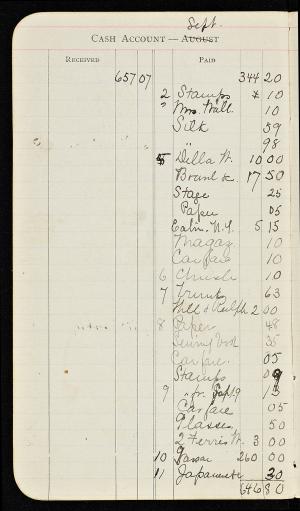 Sept.
CASH ACCOUNT — AUGUST
RECEIVED PAID
657 07 344 20
2 Stamps 10
" Mrs. Wall. 10
Silk 59
" 98
5 Della W. 10 00
Brank 17 50
Stage 25
Paper 05
Eatin. N.Y. 5 15
Magaz 10
Carfare 10
6 Church 10
7 Trunk 63
Will & Ralph 2 00
8 Paper 48
35
Carfare. 05
Stamps
9 " for Sept. 9 15
Carfare 05
Glasses 50
2 Ferris W. 3 00
10 Vassar 260 00
11 Japanese 30
646 80